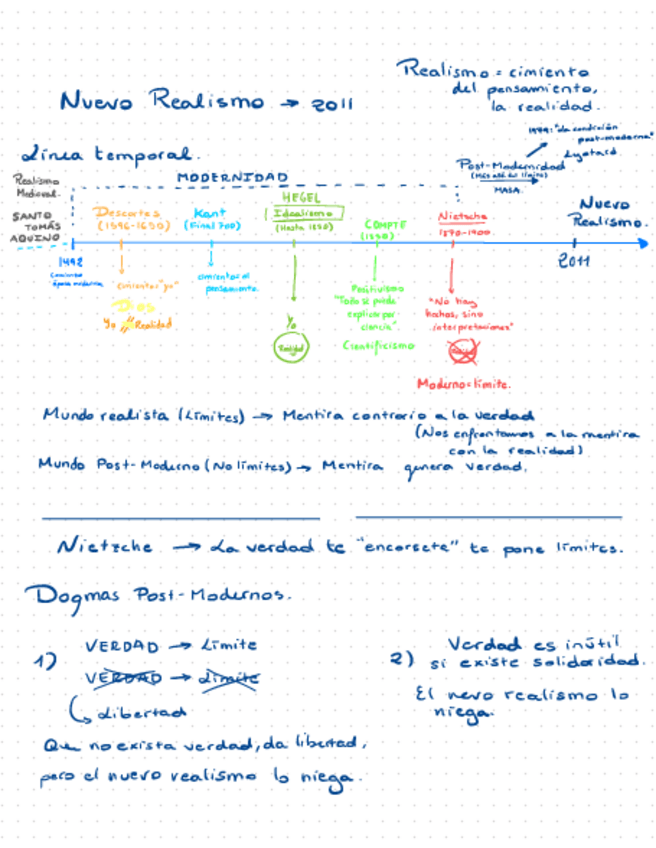 Realismo = cimiento
del pensamiento,
la realidad.
Nuevo Realismo → 2011
1979: "La condición
post-moderna"
Lyotard
Línea temporal.
Post-Modernidad
(Más allá del límite)
MASA.
Realismo
Medieval.
MODERNIDAD
SANTO
TOMÁS
AQUINO
Descartes
(1596-1650)
Kant
(Final 700)
HEGEL
Idealismo
(Hasta 1850)
COMPTE
(1850)
Nietzsche
1870-1900.
Nuevo
Realismo.
1492
Comienza
época moderna
cimiento: "yo"
Dios
Yo // Realidad
cimiento: el
pensamiento.
Yo
Realidad
Positivismo
"Todo se puede
explicar por
ciencia"
Cientificismo
"No hay
hechos, sino
interpretaciones"
Moderno=límite.
2011
Mundo realista (Límites) → Mentira contrario a la verdad
(Nos enfrentamos a la mentira
con la realidad)
Mundo Post-Moderno (No límites) → Mentira genera verdad.
Nietzche → La verdad te "encorsete" te pone límites.
Dogmas Post-Modernos.
1) VERDAD → Límite
VERDAD → Límite
Libertad
Que no exista verdad, da libertad,
pero el nuevo realismo lo niega.
2) Verdad es inútil
si existe solidaridad.
El nevo realismo lo
niega.